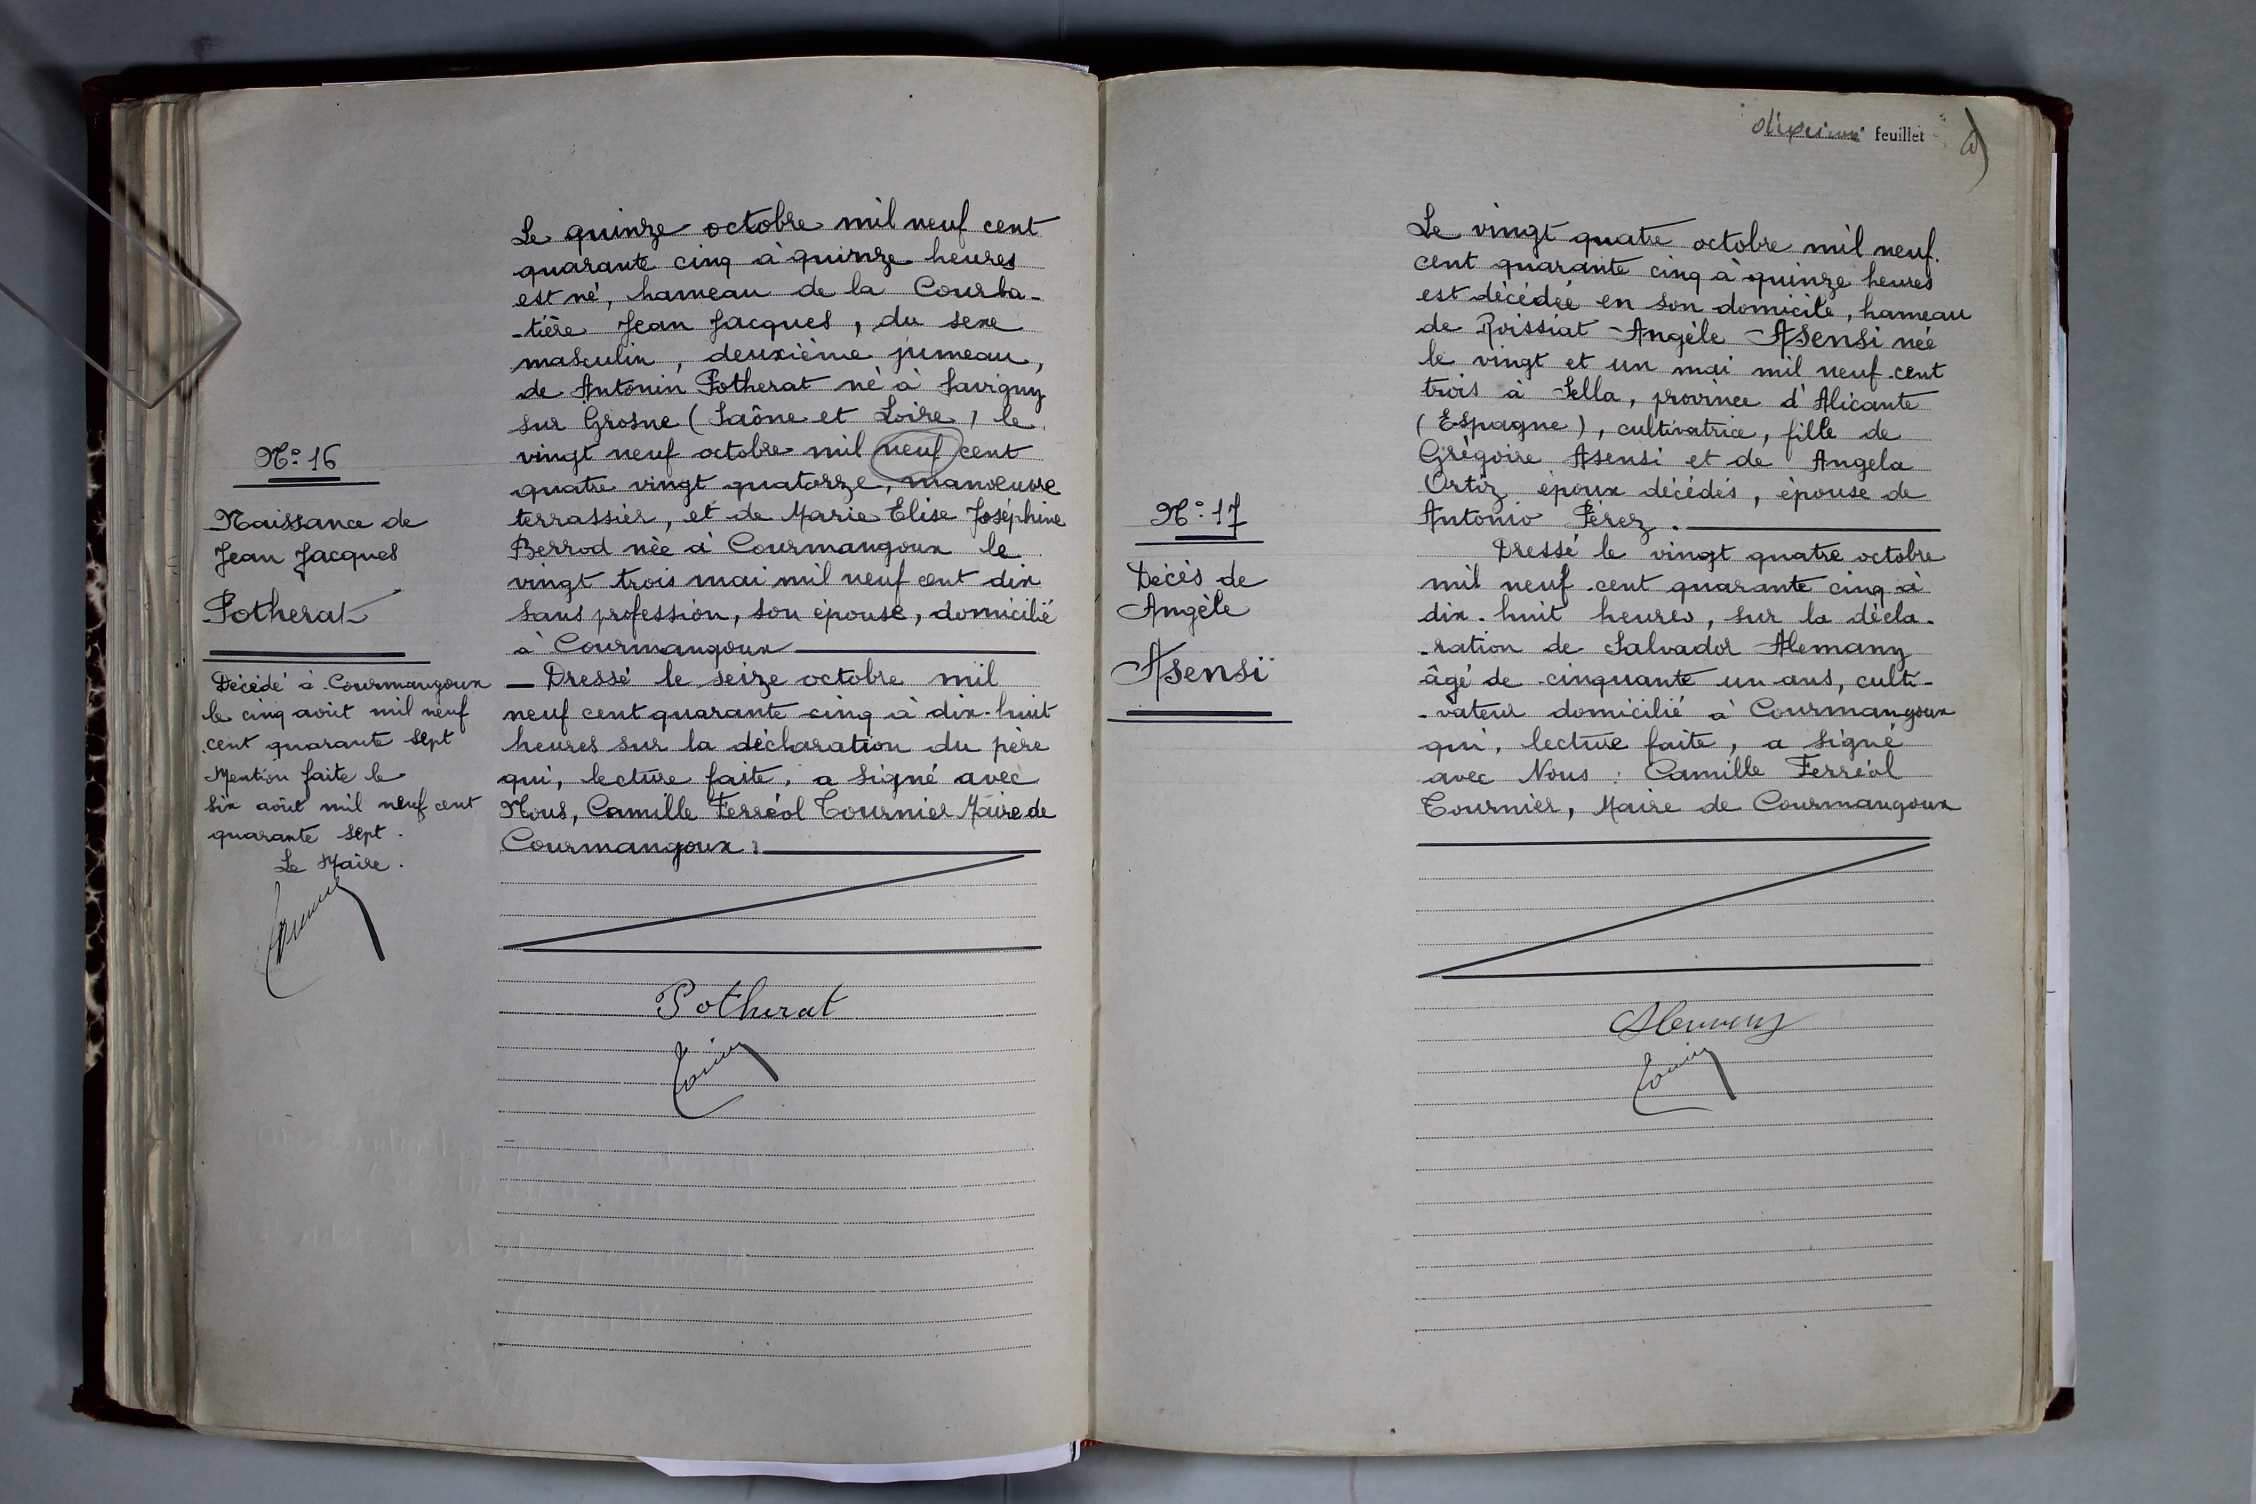 N° 16
Naissance de
Jean Jacques
Potherat
Décédé à Courmangoux
le cinq août mil neuf
cent quarante sept
Mention faite le
six août mil neuf cent
quarante sept.
Le Maire.
Le quinze octobre mil neuf cent
quarante cinq à quinze heures
est né, hameau de la Courba-
-tière Jean Jacques, du sexe
masculin, deuxième jumeau,
de Antonin Potherat né à Savigny
sur Grosne (Saône et Loire) le
vingt neuf octobre mil neuf cent
quatre vingt quatorze, manœuvre
terrassier, et de Marie Elise Josephine
Berrod née à Courmangoux le
vingt trois mai mil neuf cent dix
sans profession, son épouse, domicilié
à Courmangoux
Dressé le seize octobre mil
neuf cent quarante cinq à dix-huit
heures sur la déclaration du père
qui, lecture faite, a signé avec
Nous, Camille Ferréol Tournier Maire de
Courmangoux.
Potherat
dixième feuillet
N° 17
Décès de
Angèle
Asensi
Le vingt quatre octobre mil neuf
cent quarante cinq à quinze heures
est décédée en son domicile, hameau
de Roissiat Angèle Asensi née
le vingt et un mai mil neuf cent
trois à Sella, province d'Alicante
(Espagne), cultivatrice, fille de
Grégoire Asensi et de Angela
Ortiz époux décédés, épouse de
Antonio Pérez.
Dressé le vingt quatre octobre
mil neuf cent quarante cinq à
dix-huit heures, sur la décla-
-ration de Salvador Alemany
âgé de cinquante un ans, culti-
-vateur domicilié à Courmangoux
qui, lecture faite, a signé
avec Nous : Camille Ferréol
Tournier, Maire de Courmangoux
Alemany